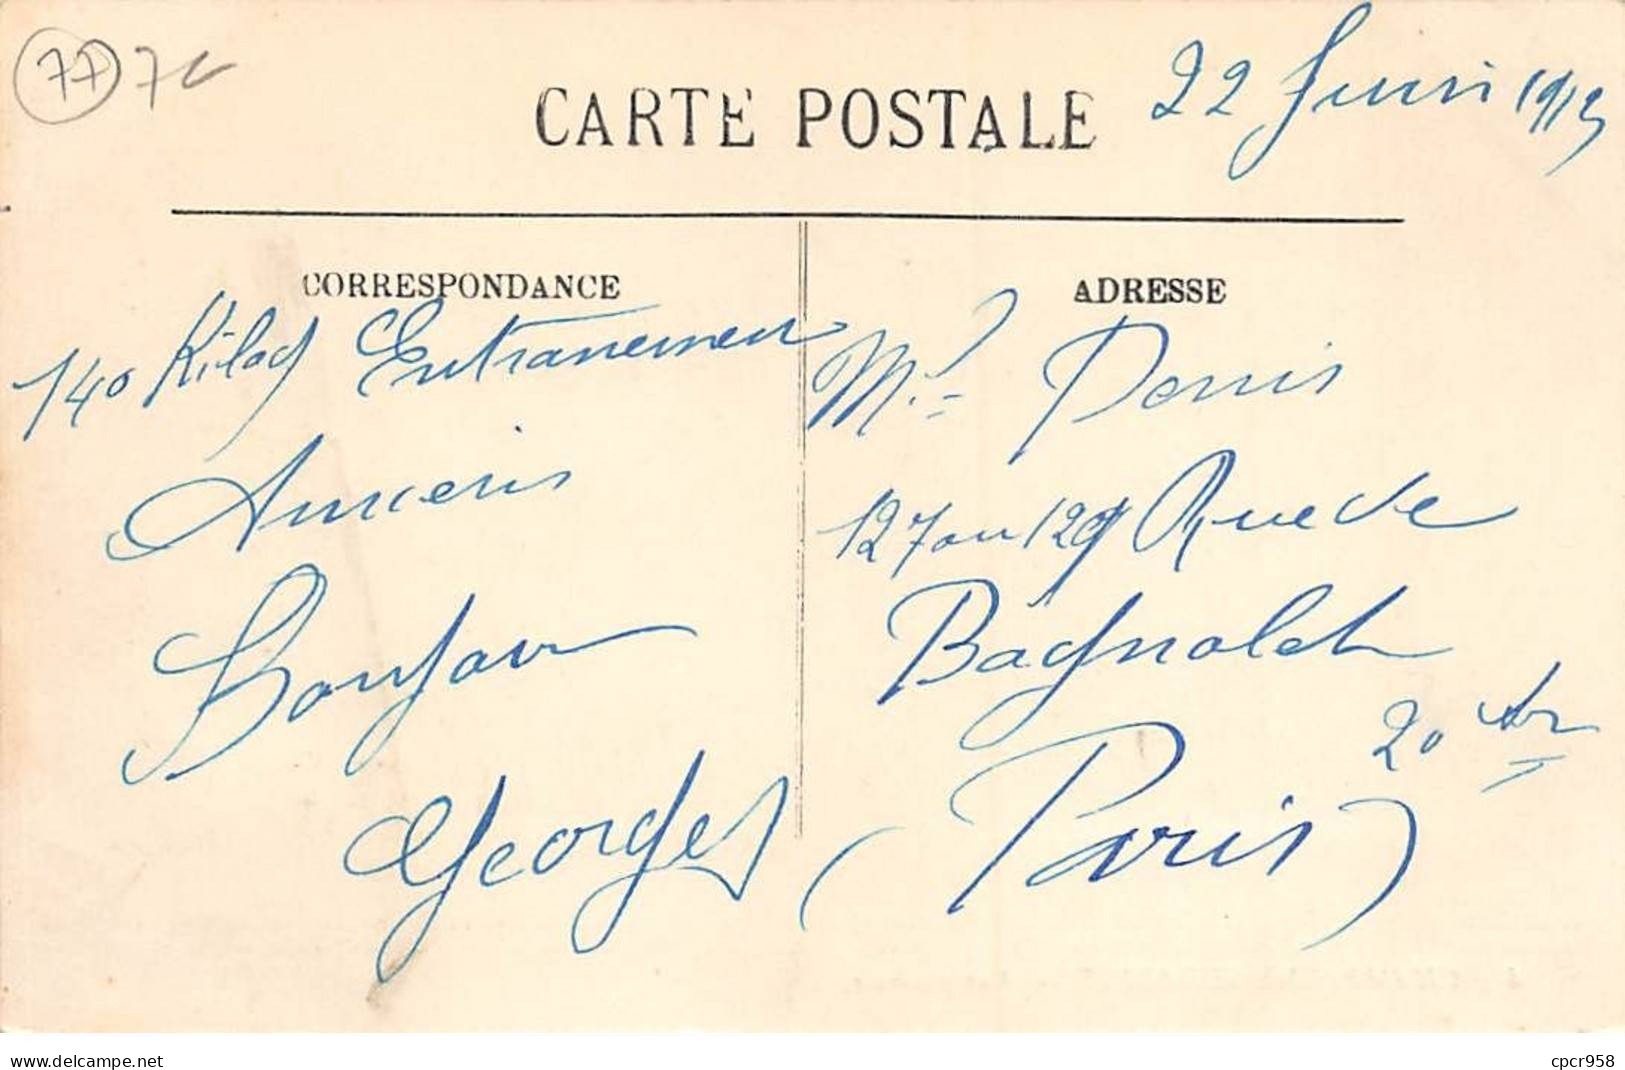 77 7c
CARTE POSTALE
22 Juin 1913
CORRESPONDANCE
ADRESSE
140 Kilog Entranement
Bonjour
Georges
Mr Denis
127 ou 129 Rue de
Bagnolet
20 Ar
(Paris)
cpcr958
delcampe.net